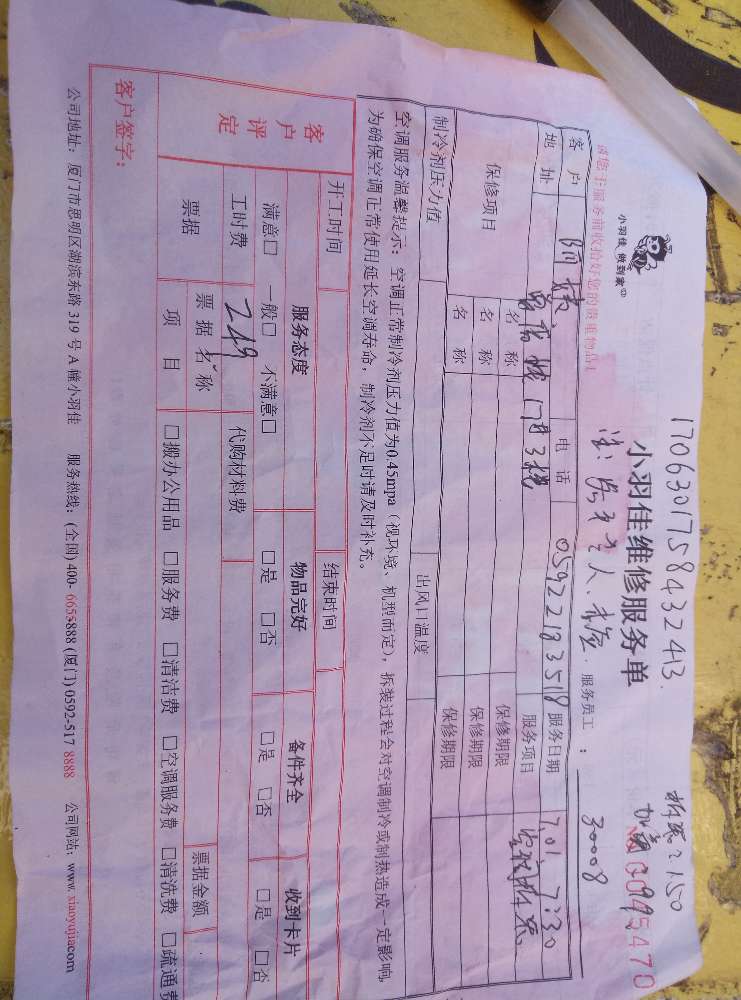 1706301758432413.
拆装:150
小羽佳 做到家
小羽佳维修服务单
请您于服务前收拾好您的贵重物品!
服务员工: 30008
客户
电话 05922183518
服务日期 7.01. 7:30
地址
服务项目 空调拆装
保修项目
名称
保修期限
名称
保修期限
名称
保修期限
制冷剂压力值
出风口温度
空调服务温馨提示:空调正常制冷剂压力值为0.45mpa(视环境、机型而定),拆装过程会对空调制冷或制热造成一定影响,
为确保空调正常使用延长空调寿命,制冷剂不足时请及时补充。
开工时间
结束时间
客户评定
服务态度
物品完好
备件齐全
收到卡片
满意□ 一般□ 不满意□
□是 □否
□是 □否
□是 □否
工时费 249
代购材料费
票据
票据名称
票据金额
项目
□搬办公用品 □服务费 □清洁费 □空调服务费 □清洗费 □疏通费
客户签字:
公司地址:厦门市思明区湖滨东路 319 号 A 幢小羽佳 服务热线:(全国)400-6655888 (厦门) 0592-517 8888 公司网站:www.xiaoyujiacom